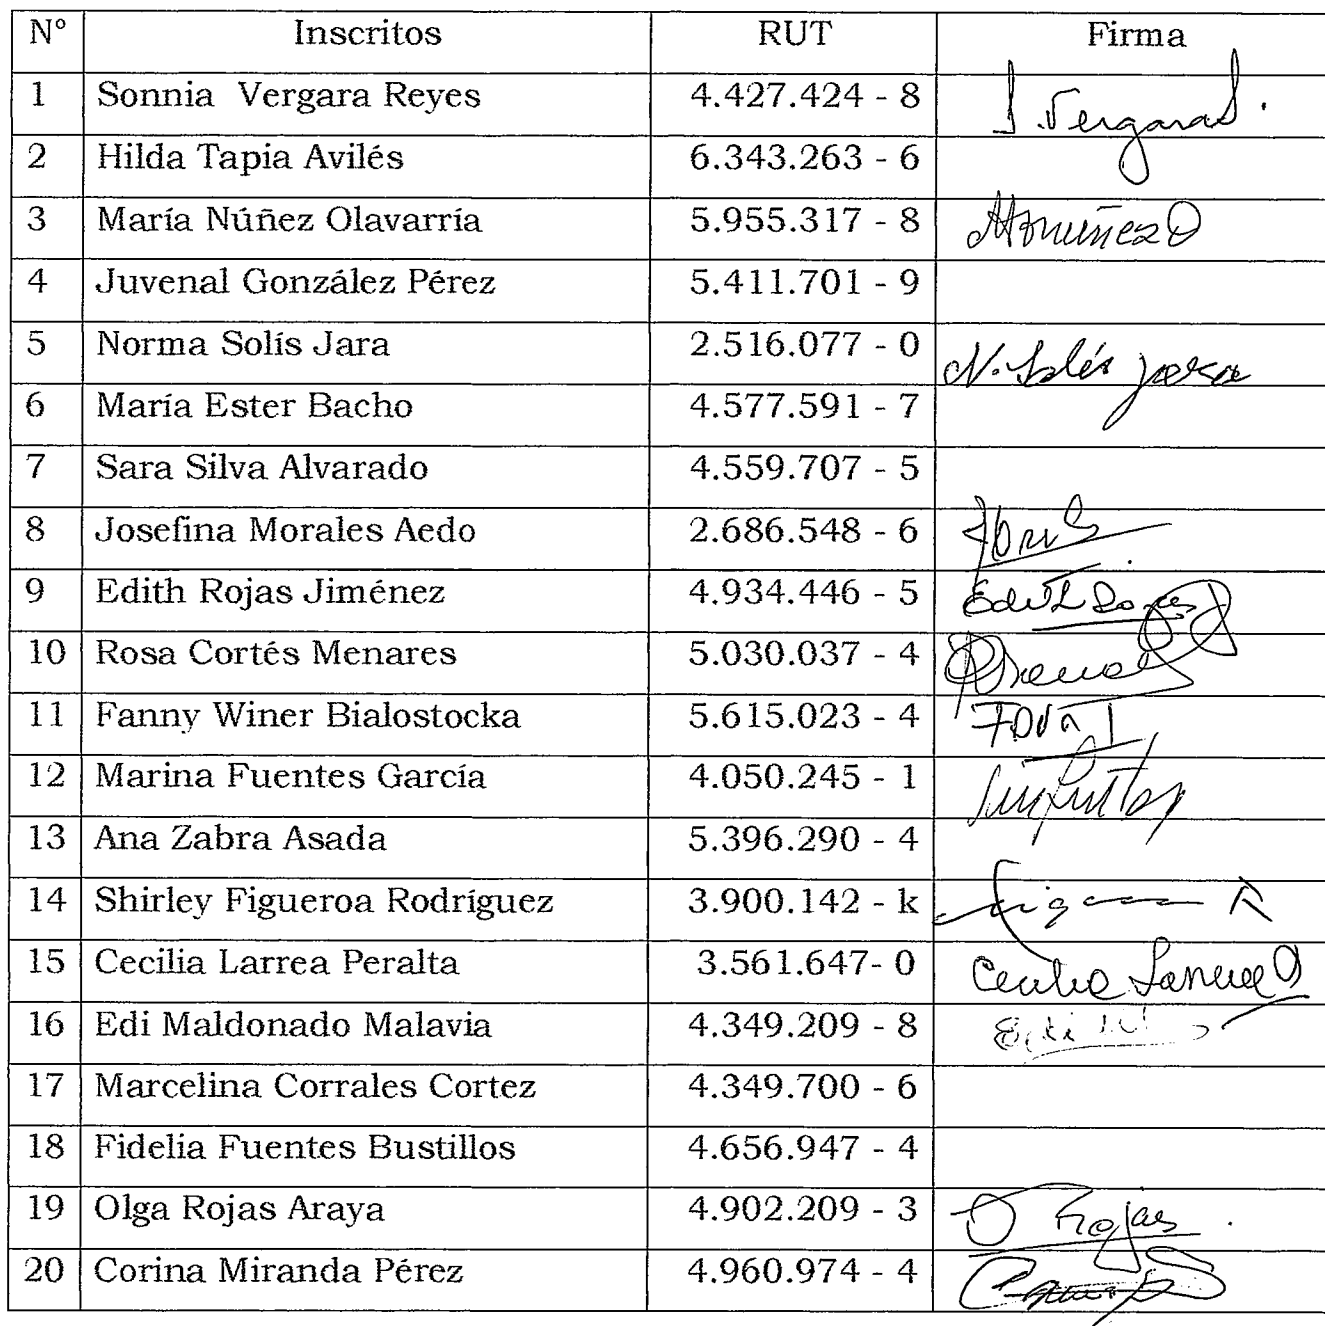 N° Inscritos RUT Firma
1 Sonnia Vergara Reyes 4.427.424 - 8 J. Vergara
2 Hilda Tapia Avilés 6.343.263 - 6
3 María Núñez Olavarría 5.955.317 - 8
4 Juvenal González Pérez 5.411.701 - 9
5 Norma Solís Jara 2.516.077 - 0 N. Solís Jara
6 María Ester Bacho 4.577.591 - 7
7 Sara Silva Alvarado 4.559.707 - 5
8 Josefina Morales Aedo 2.686.548 - 6
9 Edith Rojas Jiménez 4.934.446 - 5 Edith Rojas
10 Rosa Cortés Menares 5.030.037 - 4
11 Fanny Winer Bialostocka 5.615.023 - 4
12 Marina Fuentes García 4.050.245 - 1
13 Ana Zabra Asada 5.396.290 - 4
14 Shirley Figueroa Rodríguez 3.900.142 - k
15 Cecilia Larrea Peralta 3.561.647- 0 Cecilia Larrea
16 Edi Maldonado Malavia 4.349.209 - 8 Edi
17 Marcelina Corrales Cortez 4.349.700 - 6
18 Fidelia Fuentes Bustillos 4.656.947 - 4
19 Olga Rojas Araya 4.902.209 - 3 O Rojas
20 Corina Miranda Pérez 4.960.974 - 4